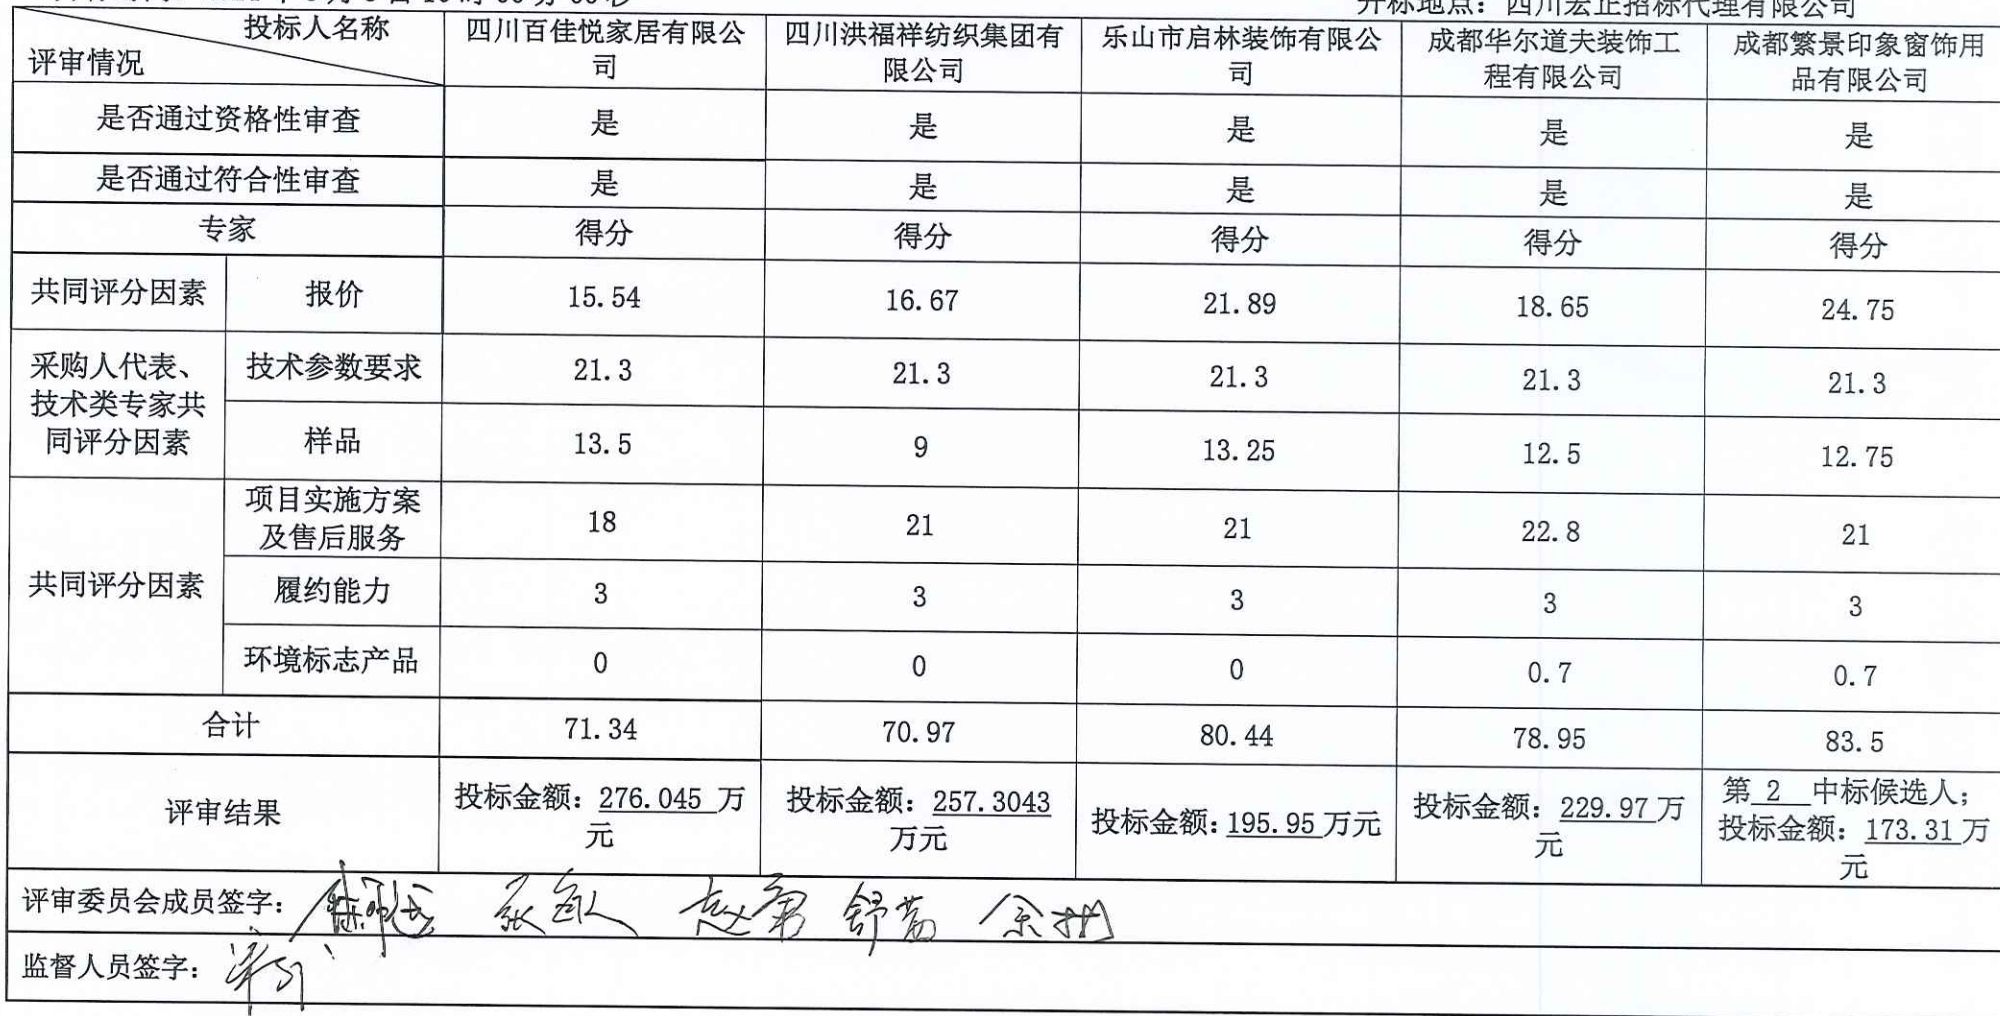 开标地点：四川宏正招标代理有限公司
投标人名称
评审情况
四川百佳悦家居有限公
司
四川洪福祥纺织集团有
限公司
乐山市启林装饰有限公
司
成都华尔道夫装饰工
程有限公司
成都繁景印象窗饰用
品有限公司
是否通过资格性审查 是 是 是 是 是
是否通过符合性审查 是 是 是 是 是
专家 得分 得分 得分 得分 得分
共同评分因素 报价 15.54 16.67 21.89 18.65 24.75
采购人代表、
技术类专家共
同评分因素
技术参数要求 21.3 21.3 21.3 21.3 21.3
样品 13.5 9 13.25 12.5 12.75
共同评分因素
项目实施方案
及售后服务
18 21 21 22.8 21
履约能力 3 3 3 3 3
环境标志产品 0 0 0 0.7 0.7
合计 71.34 70.97 80.44 78.95 83.5
评审结果
投标金额：276.045 万
元
投标金额：257.3043
万元
投标金额：195.95 万元
投标金额：229.97 万
元
第 2 中标候选人；
投标金额：173.31 万
元
评审委员会成员签字：
监督人员签字：